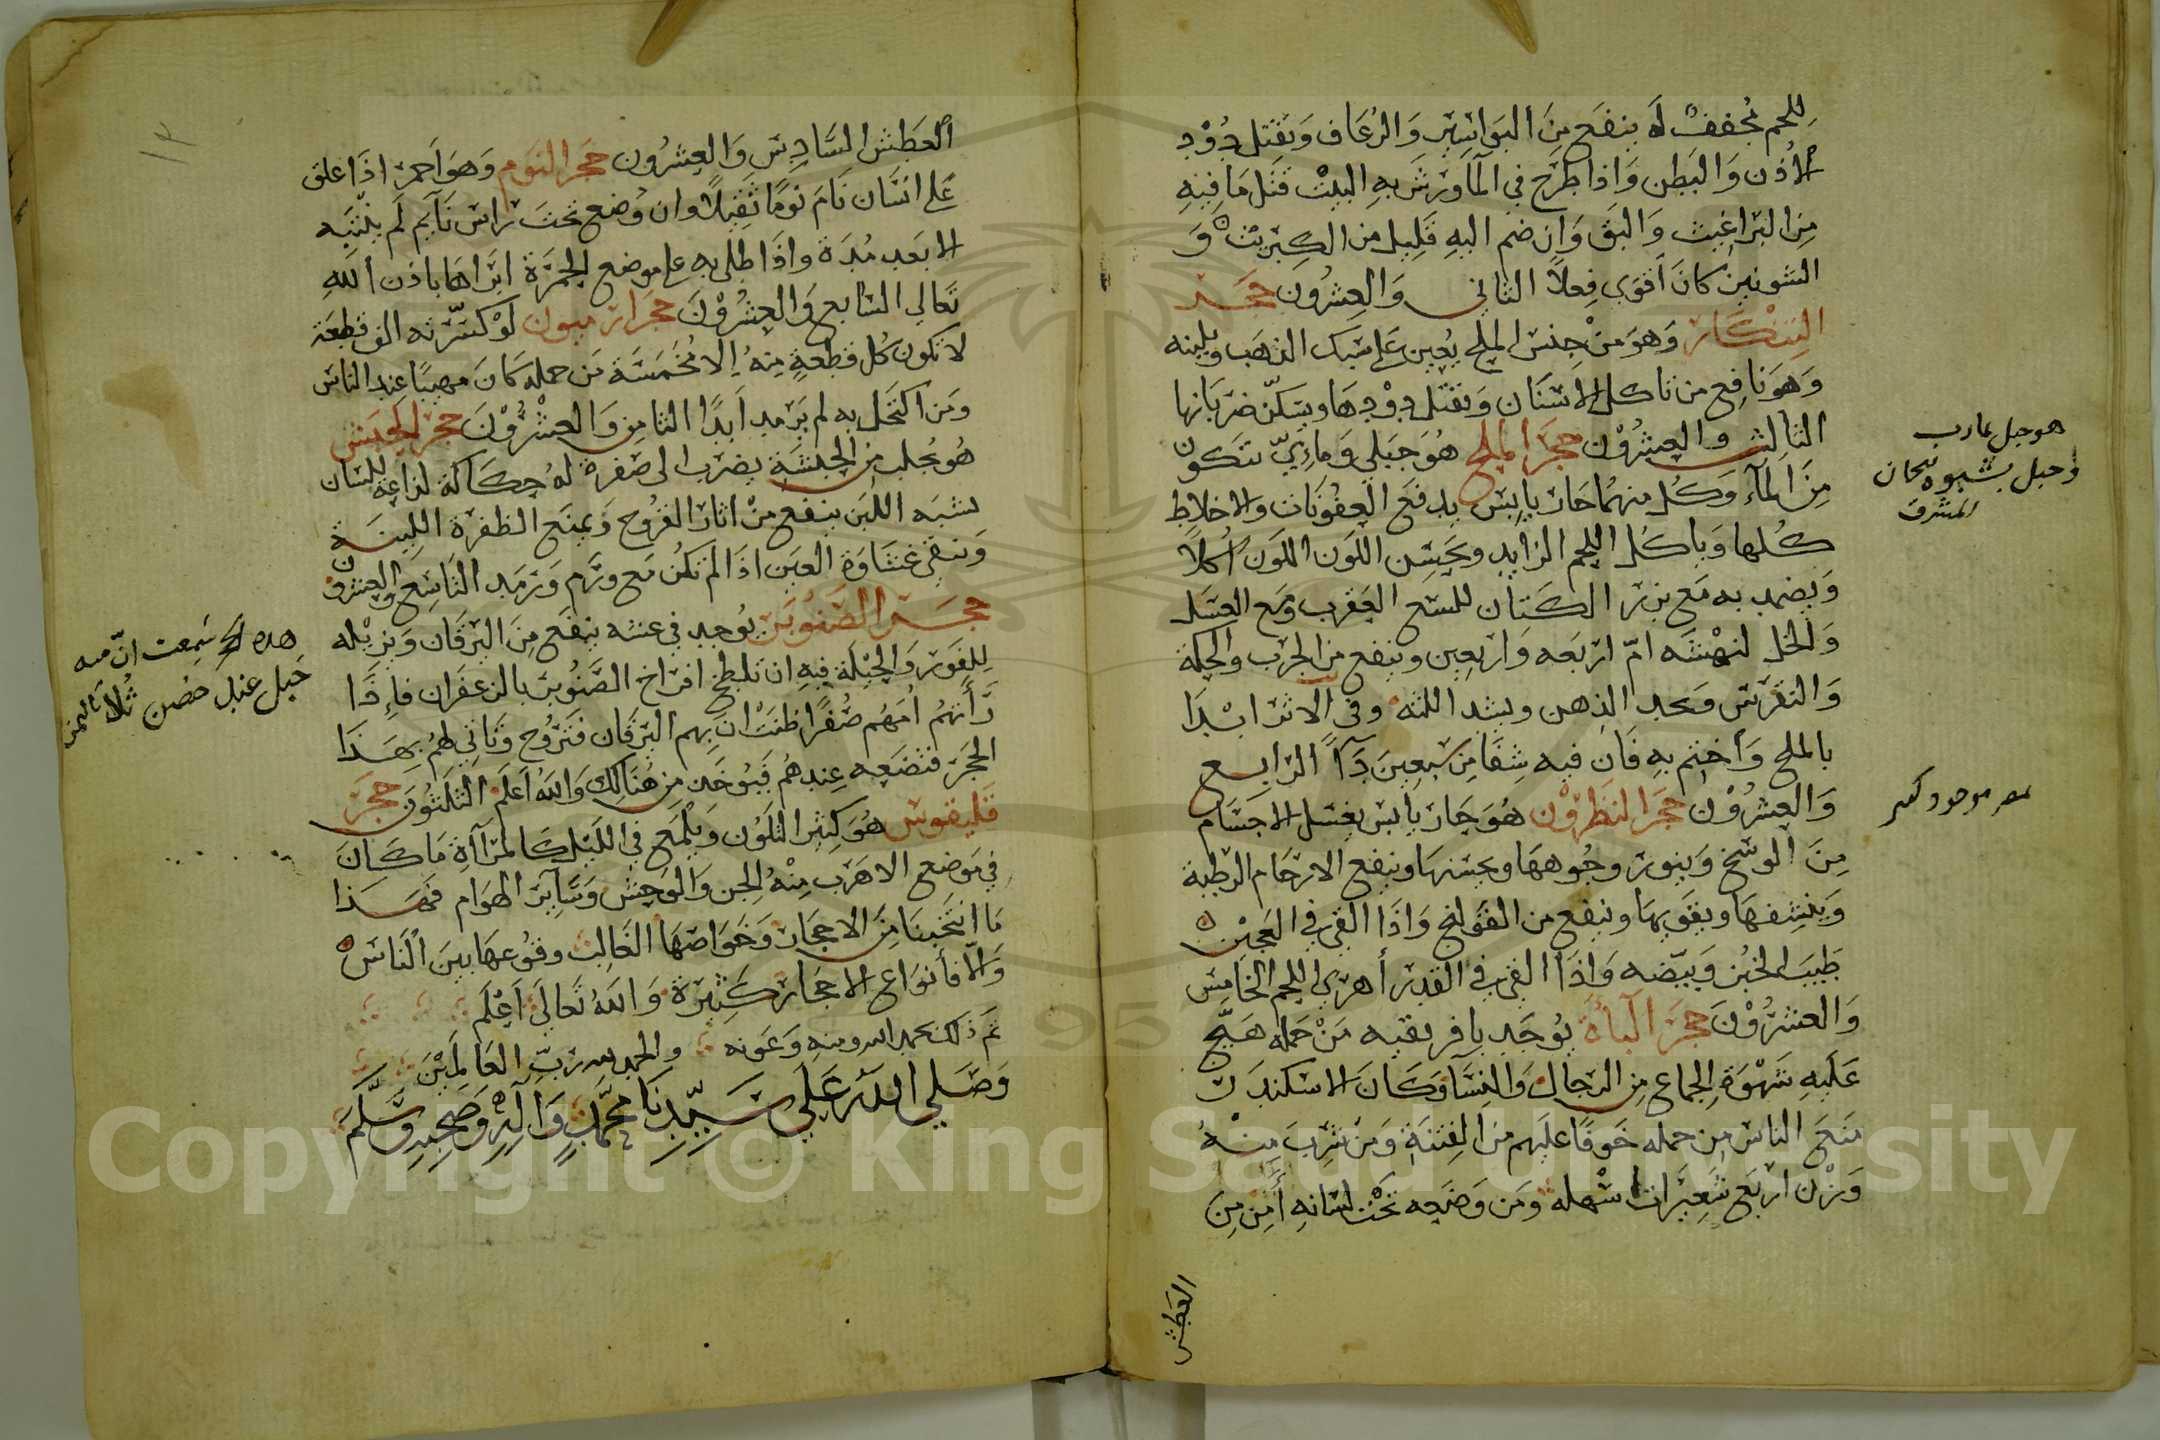 للحم مُجفف لَه ينفَع مِنَ البَوَاسِير وَالرُعَاف وَيَقتل دُوْد
الأذُن وَالبَطن وَاذا طرَح في المآ ورَشَ بهِ البيتْ قتَل مَا فيْهِ
مِنَ البَرَاغيث وَالبَق وَان ضم اليهِ قَلِيل من الكِبرِيْت وَ
الشونيزِ كانَ أقوَي فِعلاً الثاني وَالعِشرُون حَجَر
التِنْكَار وَهوَ مِنْ جِنس الملح يُعِين عَلى سَبَك الذهَب ويلينه
وَهوَ نافِع من تاكل الاسْنَان وَيَقتل دوْدهَا ويسَكّن ضرَبَانها
الثالِث والعِشرُوْن حجَر الملح هُوَ جَبَلي وَمَاءيّ يتكون
مِنَ المآء وَكُل منهمَا حَار يابِسْ يدفع العفُونَات والاخلاط
كُلها وَياكل اللحم الزايد ويحَسِن اللوَن اللون أكلاً
وَيضمد به مَع بزر الكَتان للسع العَقرب وَمع العسَل
وَالخل لنهْشَه امّ اربَعه وَاربَعِين وينفع من الجرَب والحكة
وَالنقرَس ويحد الذهن ويشد اللثه وفي الاثر ابْدَا
بالملح وَاختم بهِ فَان فيه شِفَا مِن سَبعِينَ دَآ الرابع
وَالعِشرُوْن حجَر النَطرُوْن هُوَ حَار يابسْ يغسل الاجسَام
مِنَ الوسَخ وَينور وجُوهَهَا ويحسنهَا وينفع الارحَام الرطبة
وَينشِفهَا ويقوّيهَا وينفع من القوَلنج وَاذَا القي في العجيْن
طيبَ الخبُز وَبيّضه وَاذَا القي في القدر أهري اللحم الخامِس
وَالعشرُوْنَ حجَر البَاة يوُجَد بافريقيه مَنْ حَمله هَيّج
عَليهِ شَهْوَة الجماع مِن الرجَال وَالنِسَا وَكَانَ الاسكندَر
مَنعَ الناسَ مِن حمله خَوفا علَيهم مِنَ الفِتنَة وَمَن شرِبَ مِنْهُ
وَزن اربَع شَعِيرَات اسْهله وَمَن وَضعه تحْت لسَانهِ أمِنْ مِنَ
العَطش
هو جبل بمارب
وجبل بشبوه نيحان
المشرق
بمصر موجود كثير
العَطش السَّادِسْ وَالعِشرُون حَجر النوَم وَهوَ احمر اذَا علق
عَلى انسَان نَامَ نومًا ثقيلاً وان وُضع تحتَ راسْ نَايم لَم ينتبَه
الا بَعد مُدَة واذَا طلى به على موضع الحمرَة ابرَاهَا باذن الله
تعَالي السَابع وَالعشرُوْنَ حجَر ارميون لَوْ كسَّرته الف قطِعَة
لا تكون كُل قطعةٍ مِنهُ إلا مُخَمسَة مَن حمله كَانَ مهيبًا عِند الناس
وَمَن اكتحَل به لم يَرمد اَبدًا الثامِن وَالعِشْرُوْنَ حجر الحبَش
هُو يُجلب مِنَ الحَبشَة يضرب الى صفرة لهُ حكَاكَة لذاعة للسَان
يشبَه اللبَن ينفع مِنْ اثار القرُوح وَيمنَع الظفرَة اللينَة
وَينقي غشَاوَة العَين اذَا لمْ تكن مَع ورَم وَرَمد التَاسِع والعِشرون
حجَر الصَنُوبَر يوُجد في عشه ينفَع مِنَ اليرَقان وَيزيْله
لِلفَور وَالحِيلَة فيهِ ان تلطخ افرَاخ الصَّنُوبَر بالزعفَران فإذَا
رَأتهُمُ امهُم صُفرًا ظنَتْ ان بِهم اليَرقَان فَترُوح وَتاتي لهُمُ بهَذَا
الحجَر فتضعه عِندهُم فَيوُخَذ مِن هُنَالك وَاللهُ اعَلم الثلثوُنَ حجَر
قَليقوسْ هُو كثير التلوُن وَيلمَع في اللَيلِ كالمرَآةِ مَا كَانَ
في مَوضع الا هرَب مِنْهُ الجن وَالوَحِش وَسَايَر الهوَام فهَذا
مَا انتخبنَا مِنَ الاحجَار وَخَوَاصَهَا الغَالِب وقوُعهَا بينَ الْنَاسْ
وَالّا فأنوَاع الاحجَار كَثِيرَة وَاللهُ تَعَاليَ أعْلَم
تمَ ذلك بحمد الله ومنهِ وَعَونه والحمد لله رَبّ العَالمَيْنَ
وَصَلي اللهُ عَلَي سَيّدنَا محَمّدٍ وَآلِهِ وَصَحبِهِ وَسَّلمَ
هده سَمعت انّ منه
جَبل عند حصن ثُلا باليمن
١٢
Copyright © King Saud University